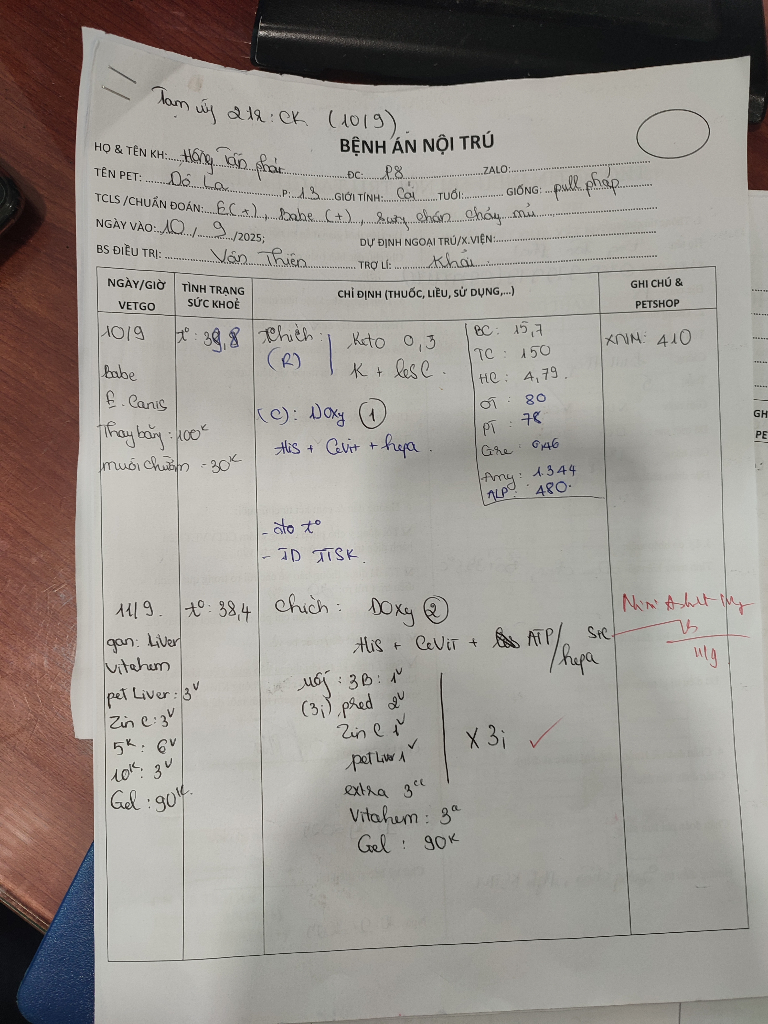 Tạm ứng 212: CK (10/9)
BỆNH ÁN NỘI TRÚ
HỌ & TÊN KH: Hồng Tấn phát ĐC: P8 ZALO:
TÊN PET: Dô La P: 13 GIỚI TÍNH: Cái TUỔI: GIỐNG: pull pháp
TCLS /CHUẨN ĐOÁN: E(+), babe (+), sưng chân chảy mủ
NGÀY VÀO: 10 / 9 /2025; DỰ ĐỊNH NGOẠI TRÚ/X.VIỆN:
BS ĐIỀU TRỊ: Văn Thiên TRỢ LÍ: Khải
NGÀY/GIỜ VETGO
TÌNH TRẠNG SỨC KHOẺ
CHỈ ĐỊNH (THUỐC, LIỀU, SỬ DỤNG,...)
GHI CHÚ & PETSHOP
10/9
babe
E. Canis
Thay băng: 100K
muối - 30K
t°: 39,8
Chích:
(R)
Keto 0,3
K + lesC.
(C): Doxy 1
His + CeVit + hepa.
- đo t°
- TD TTSK.
BC: 15,7
TC: 150
HC: 4,79.
OT: 80
PT: 78
Cre: 0,46
Amy: 1344
ALP: 480.
XNM: 410
11/9.
gan: Liver
Vitahem
pet Liver: 3V
Zin C: 3V
5K: 6V
10K: 3V
Gel: 90K.
t°: 38,4
Chích: Doxy 2
His + CeViT + ATP/hepa
uống: 3B: 1V
(3i) pred 2V
Zin C 1V
pet Liver 1V
extra 3cc
Vitahem: 3cc
Gel: 90K
X 3i
11/9
GH
PE